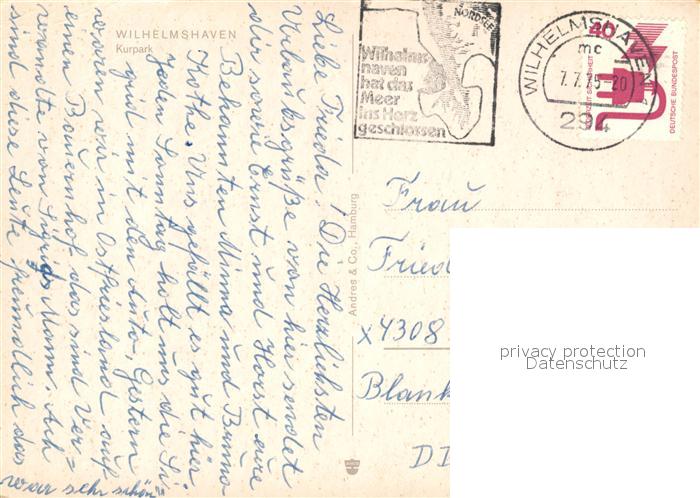 WILHELMSHAVEN
Kurpark
Liebe Frieda! Die Herzlichsten
Urlaubsgrüße von hier sendet
dir sowie Ernst und Horst eure
Bekannten Minna und Bruno
Kothe. Uns gefällt es gut hier
jeden Sonntag holt uns die Si
grid mit den Auto, Gestern
waren wir in Ostfriesland auf
einen Bauernhof das sind Ver=
wandte von Sigrids Mann. Ach
sind diese Leute freundlich das
war sehr schön"
Andres & Co., Hamburg
NORDSEE
Wilhelms
haven
hat das
Meer
ins Herz
geschlossen
WILHELMSHAVEN 1
mc
7.7.75-20
294
40
DEUTSCHE BUNDESPOST
Frau
Fried
x4308
Blank
DD
privacy protection
Datenschutz